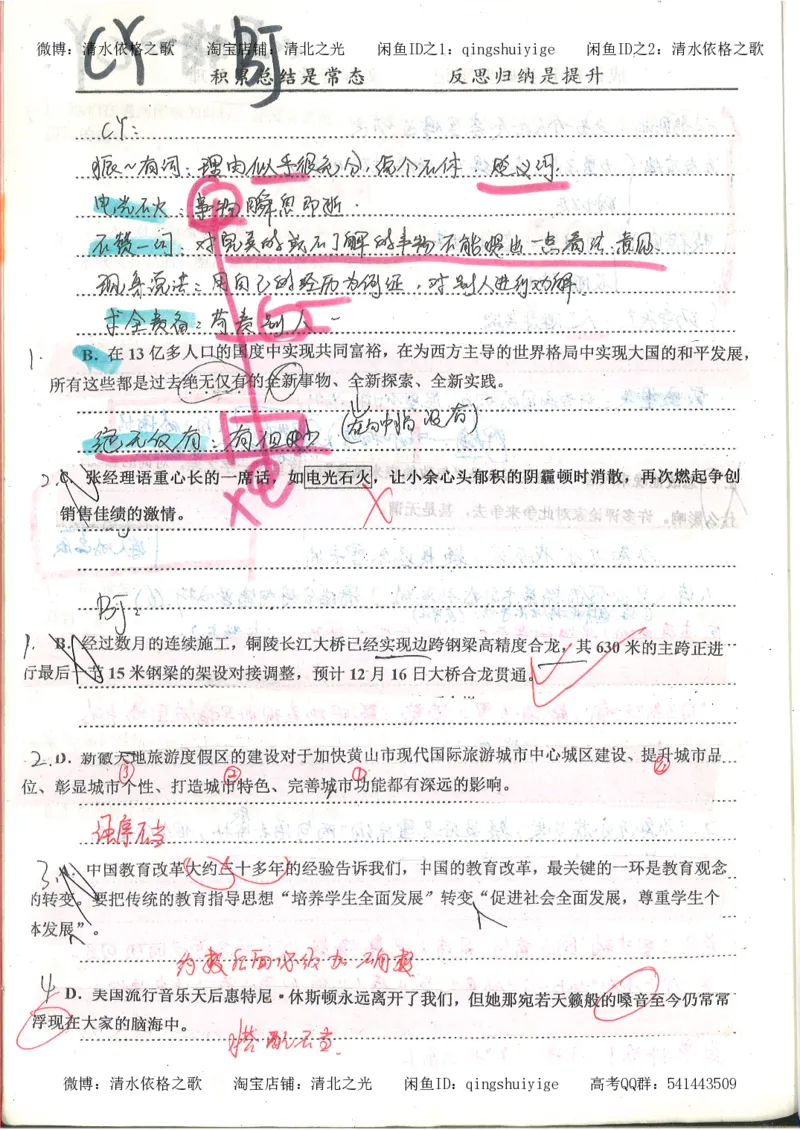 CY BJ
微博：清水依格之歌 淘宝店铺：清北之光 闲鱼ID之1：qingshuiyige 闲鱼ID之2：清水依格之歌
积累总结是常态 反思归纳是提升
CY：
振~有词：理由似乎很充分，说个不休 贬义词.
电光石火：事物瞬息即逝.
不赞一词：对完美的或不了解的事物不能提出一点看法.意见
现身说法：用自己的经历为例证，对别人进行劝解.
求全责备：苛责别人
1. B. 在13亿多人口的国度中实现共同富裕，在为西方主导的世界格局中实现大国的和平发展，
所有这些都是过去绝无仅有的全新事物、全新探索、全新实践。
绝无仅有：有但少 (在句中指没有)
2. 张经理语重心长的一席话，如电光石火，让小余心头郁积的阴霾顿时消散，再次燃起争创
销售佳绩的激情。
BJ：
1. B. 经过数月的连续施工，铜陵长江大桥已经实现边跨钢梁高精度合龙，其630米的主跨正进
行最后一节15米钢梁的架设对接调整，预计12月16日大桥合龙贯通。
2. D. 新徽天地旅游度假区的建设对于加快黄山市现代国际旅游城市中心城区建设、提升城市品
③ ② ①
位、彰显城市个性、打造城市特色、完善城市功能都有深远的影响。
语序不当
3. 中国教育改革大约三十多年的经验告诉我们，中国的教育改革，最关键的一环是教育观念
的转变。要把传统的教育指导思想“培养学生全面发展”转变“促进社会全面发展，尊重学生个
体发展”。
约数后面不能加确数
4 D. 美国流行音乐天后惠特尼·休斯顿永远离开了我们，但她那宛若天籁般的嗓音至今仍常常
浮现在大家的脑海中。
搭配不当.
微博：清水依格之歌 淘宝店铺：清北之光 闲鱼ID：qingshuiyige 高考QQ群：541443509